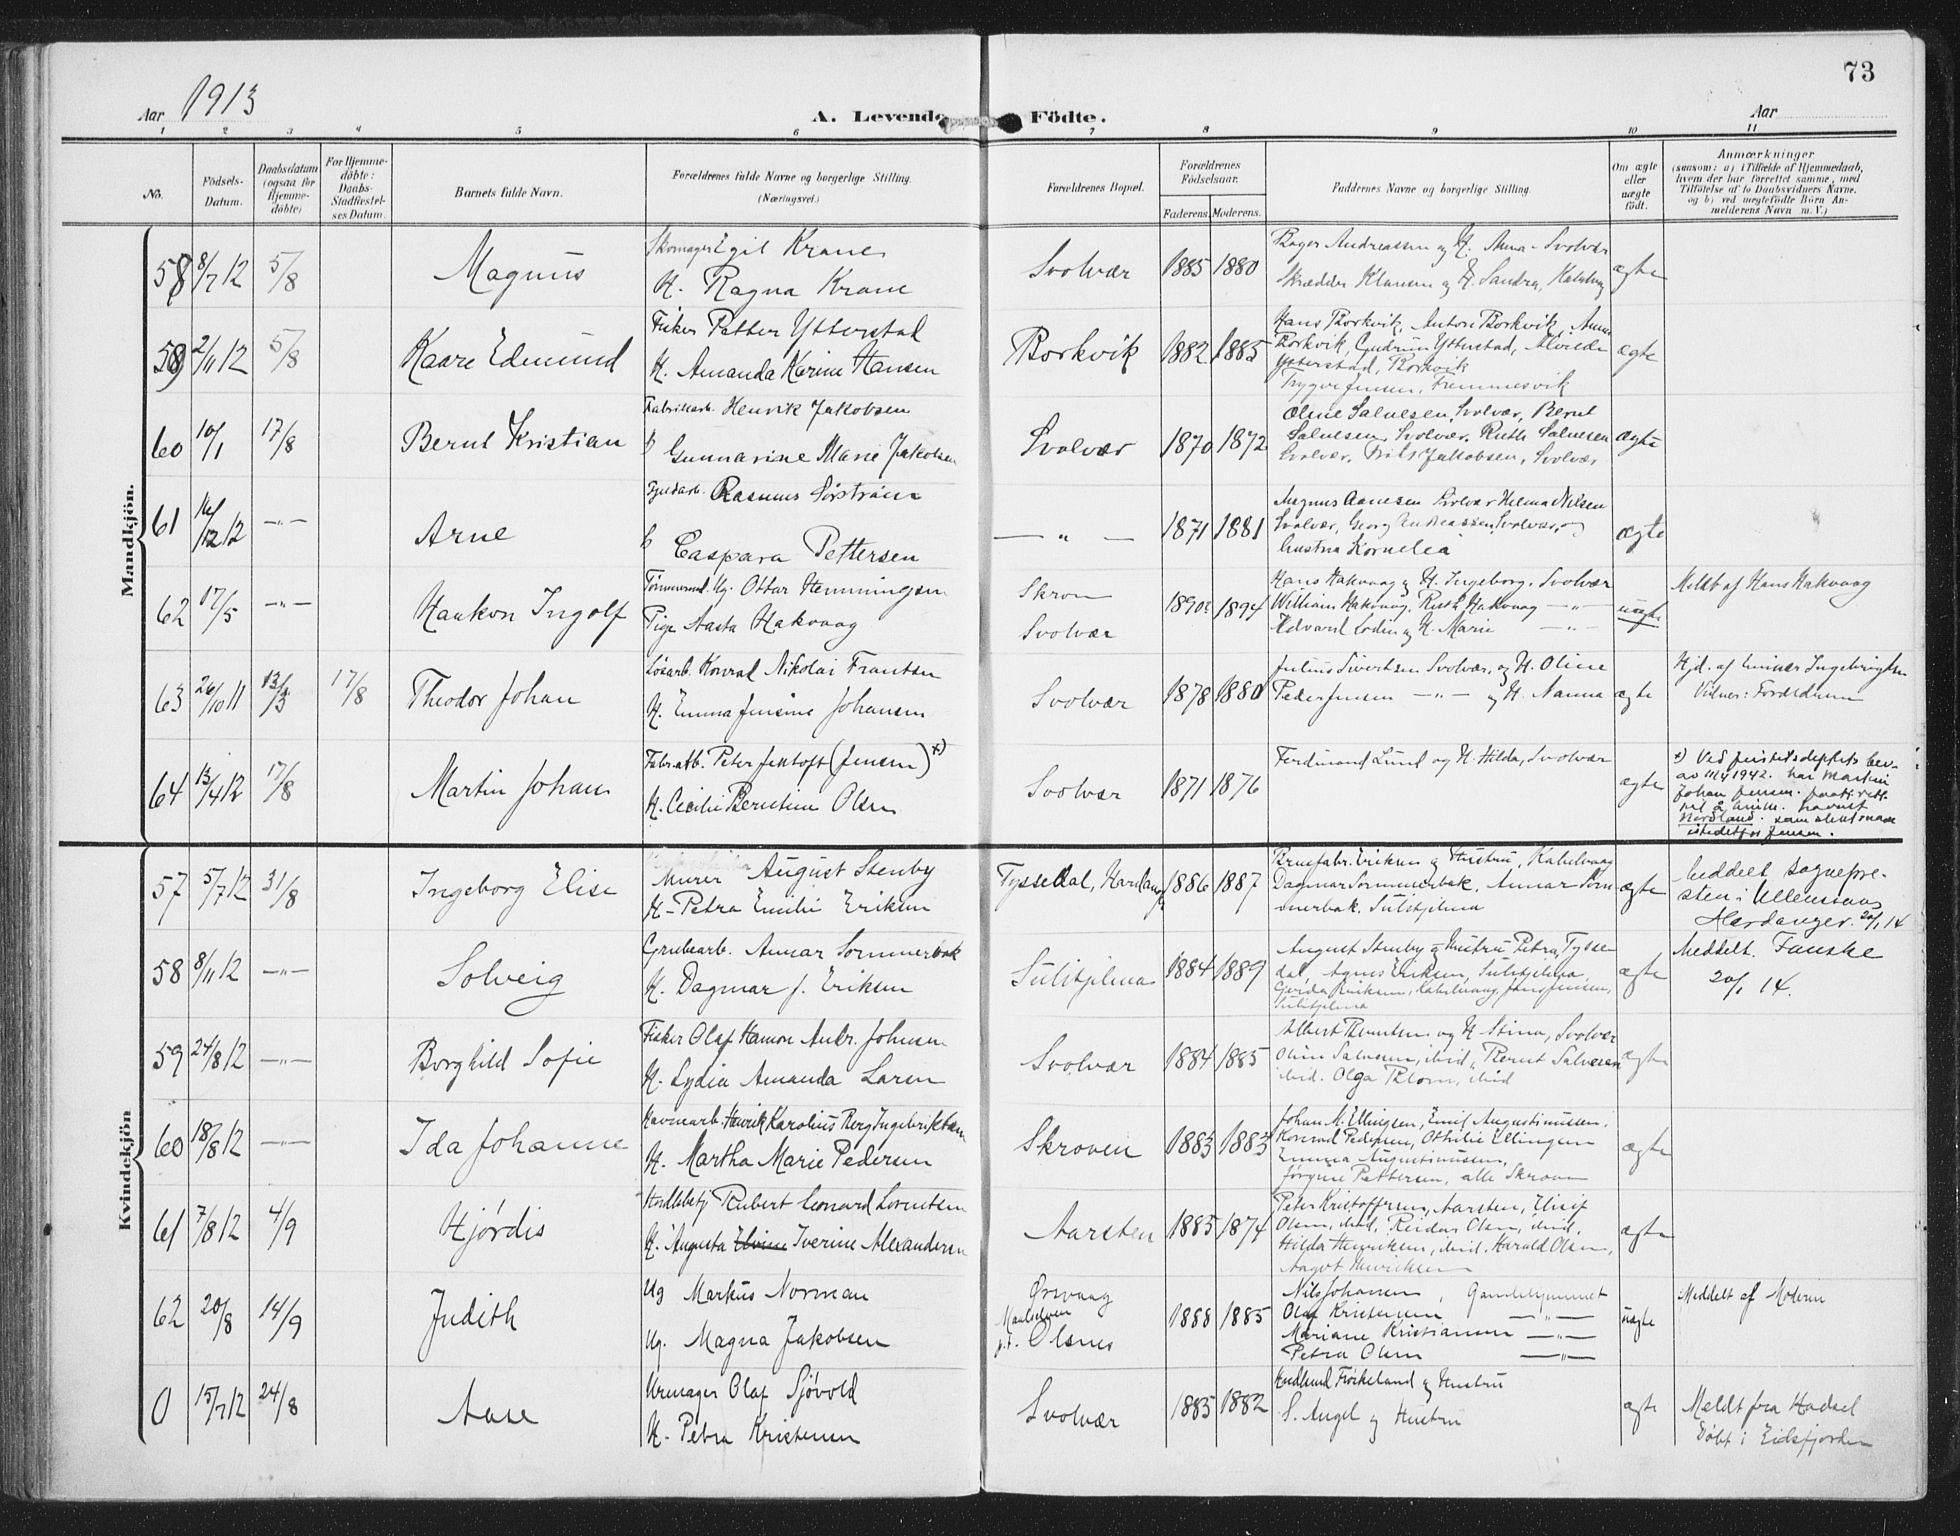 73
Aar 1913
A. Levende Födte.
Aar
1 2 3 4 5 6 7 8 9 10 11
No.
Födsels-
Datum.
Daabsdatum
(ogsaa for
Hjemme-
döbte)
For Hjemme-
döbte:
Daabs-
Stadfæstel-
ses Datum.
Barnets fulde Navn.
Forældrenes fulde Navne og borgerlige Stilling.
(Næringsvei.)
Forældrenes Bopæl.
Forældrenes
Födselsaar.
Faderens. Moderens.
Faddernes Navne og borgerlige Stilling.
Om ægte
eller
uægte
födt.
Anmærkninger
(saasom: a) i Tilfælde af Hjemmedaab,
hvem der har forrettet samme, med
Tilföielse af to Daabsvidners Navne.
og b) ved uægtefödte Börn An-
melderens Navn m. V.)
Mandkjön.
58 8/7 12 5/8 Magnus
Skomager Egil Krane
H. Ragna Krane
Svolvær 1885 1880
Bager Andreassen og H. Anna - Svolvær
Skrædder Klausen og H. Sandra, Kabelvaag
ægte
59 2/11 12 5/8 Kaare Edmund
Fisker Petter Ytterstad
H. Amanda Karine Hansen
Borkvik 1882 1885
Hans Borkvik, Anton Borkvik, Anna
Borkvik, Gudrun Ytterstad,
Ytterstad, Borkvik
Trygve Jensen,
ægte
60 10/1 17/8 Bernt Kristian
Fabrikarb. Henrik Jakobsen
Gunnarine Marie Jakobsen
Svolvær 1870 1872
Oline Salvesen, Svolvær, Bernt
Salvesen, Svolvær, Ruth Salvesen
Svolvær, Nils Jakobsen, Svolvær
ægte
61 16/12 12 —"— Arne
Rasmus Sörström
Caspara Pettersen
— " — 1871 1881
Magnus Aanesen Svolvær Helma Nilsen
Svolvær, Georg Andreassen, Svolvær, og
hustru Kornelia
ægte
62 17/5 —"— Haakon Ingolf
Tømmermd. Ug. Ottar Hemmingsen
Pige Aasta Hakvaag
Skroven
Svolvær
1890 1894
Hans Hakvaag og H. Ingeborg, Svolvær
William Hakvaag, Ruth Hakvaag —"—
Edvard Lodin og H. Marie —"—
uægte
Meldt af Hans Hakvaag
63 26/10 11 13/3 17/8 Theodor Johan
Løsarb. Konrad Nikolai Frantsen
H. Emma Jensine Johansen
Svolvær 1878 1880
Julius Sivertsen Svolvær, og H. Oline
Peder Jensen —"— og H. Nanna
ægte
Hjd. af Einar Ingebrigtsen
Vidner: Forældrene
64 13/4 12 17/8 Martin Johan
Fabr.arb. Peter Jentoft (Jensen) x)
H. Cecilie Berntine Olsen
Svolvær 1871 1876
Ferdinand Lund og H. Hilda, Svolvær
ægte
x) Ved justitsdeptets bev.
av 1942. har Martin
Johan Jensen faatt rett
til å navnet
Nordland som slektsnavn
istedetfor Jensen.
Kvindekjön
57 5/7 12 31/8 Ingeborg Elise
Murer August Stenby
H. Petra Emilie Eriksen
Tyssedal, Hardanger 1886 1887
Eriksen og Hustru, Kabelvaag
Dagmar Sommerbak, Annar Som-
merbak, Sulitjelma
ægte
Meddelt sognepre-
sten i Ullensvang
Hardanger. 20/1 14
58 8/11 12 —"— Solveig
Grubearb. Annar Sommerbak
H. Dagmar J. Eriksen
Sulitjelma 1884 1889
August Stenby og Hustru Petra, Tysse-
dal, Agnes Eriksen, Sulitjelma,
Gerda Eriksen, Kabelvaag, Jensen,
Sulitjelma
ægte
Meddelt. Fauske
20/1 14.
59 24/8 12 —"— Borghild Sofie
Fisker Olaf Hamon Andr. Johnsen
H. Lydia Amanda Larsen
Svolvær 1884 1885
Albert og H Stina, Svolvær
Oline Salvesen, ibid, Bernt Salvesen
ibid. Olga Blom, ibid
ægte
60 18/8 12 —"— Ida Johanne
Havnearb. Henrik Karolius Berg Ingebriktsen
H. Martha Marie Pedersen
Skroven 1883 1883
Johan M. Ellingsen, Emil Augustinussen,
Konrad Pedersen, Othilie Ellingsen
Emma Augustinussen,
Jørgine Pettersen, alle Skroven
ægte
61 7/8 12 4/9 Hjørdis
Robert Leonard Lorentsen
H. Augusta Elvine Iverine Alexandersen
Aarsten 1885 1874
Peter Kristoffersen, Aarsten, Elisif
Olsen, ibid, Reidar Olsen, ibid,
Hilda Henriksen, ibid. Harald Olsen,
Aagot Henriksen
ægte
62 20/8 14/9 Judith
Ug Markus Norman
Ug. Magna Jakobsen
Ørsvaag
Maalselven
p.t. Olsnes
1888 1885
Nils Johansen,
Olaf Kristensen —"—
Mariane Kristiansen —"—
Petra Olsen —"—
uægte
Meddelt af Moderen
0 15/7 12 24/8 Aase
Urmager Olaf Sjövold
H. Petra Kristensen
Svolvær 1885 1882
og Hustru
S. Angel og Hustru
ægte
Meldt fra Hadsel
Döbt i Eidsfjorden